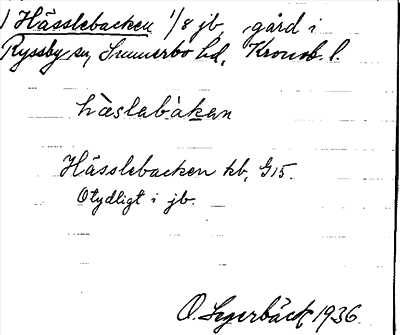 1 Hässlebacken 1/8 jb, gård i
Ryssby sn, Sunnerbo hd, Kronob. l.
hæ̀slabàkan
Hässlebacken kb, G15.
Otydligt i jb.
O. Segerbäck 1936.